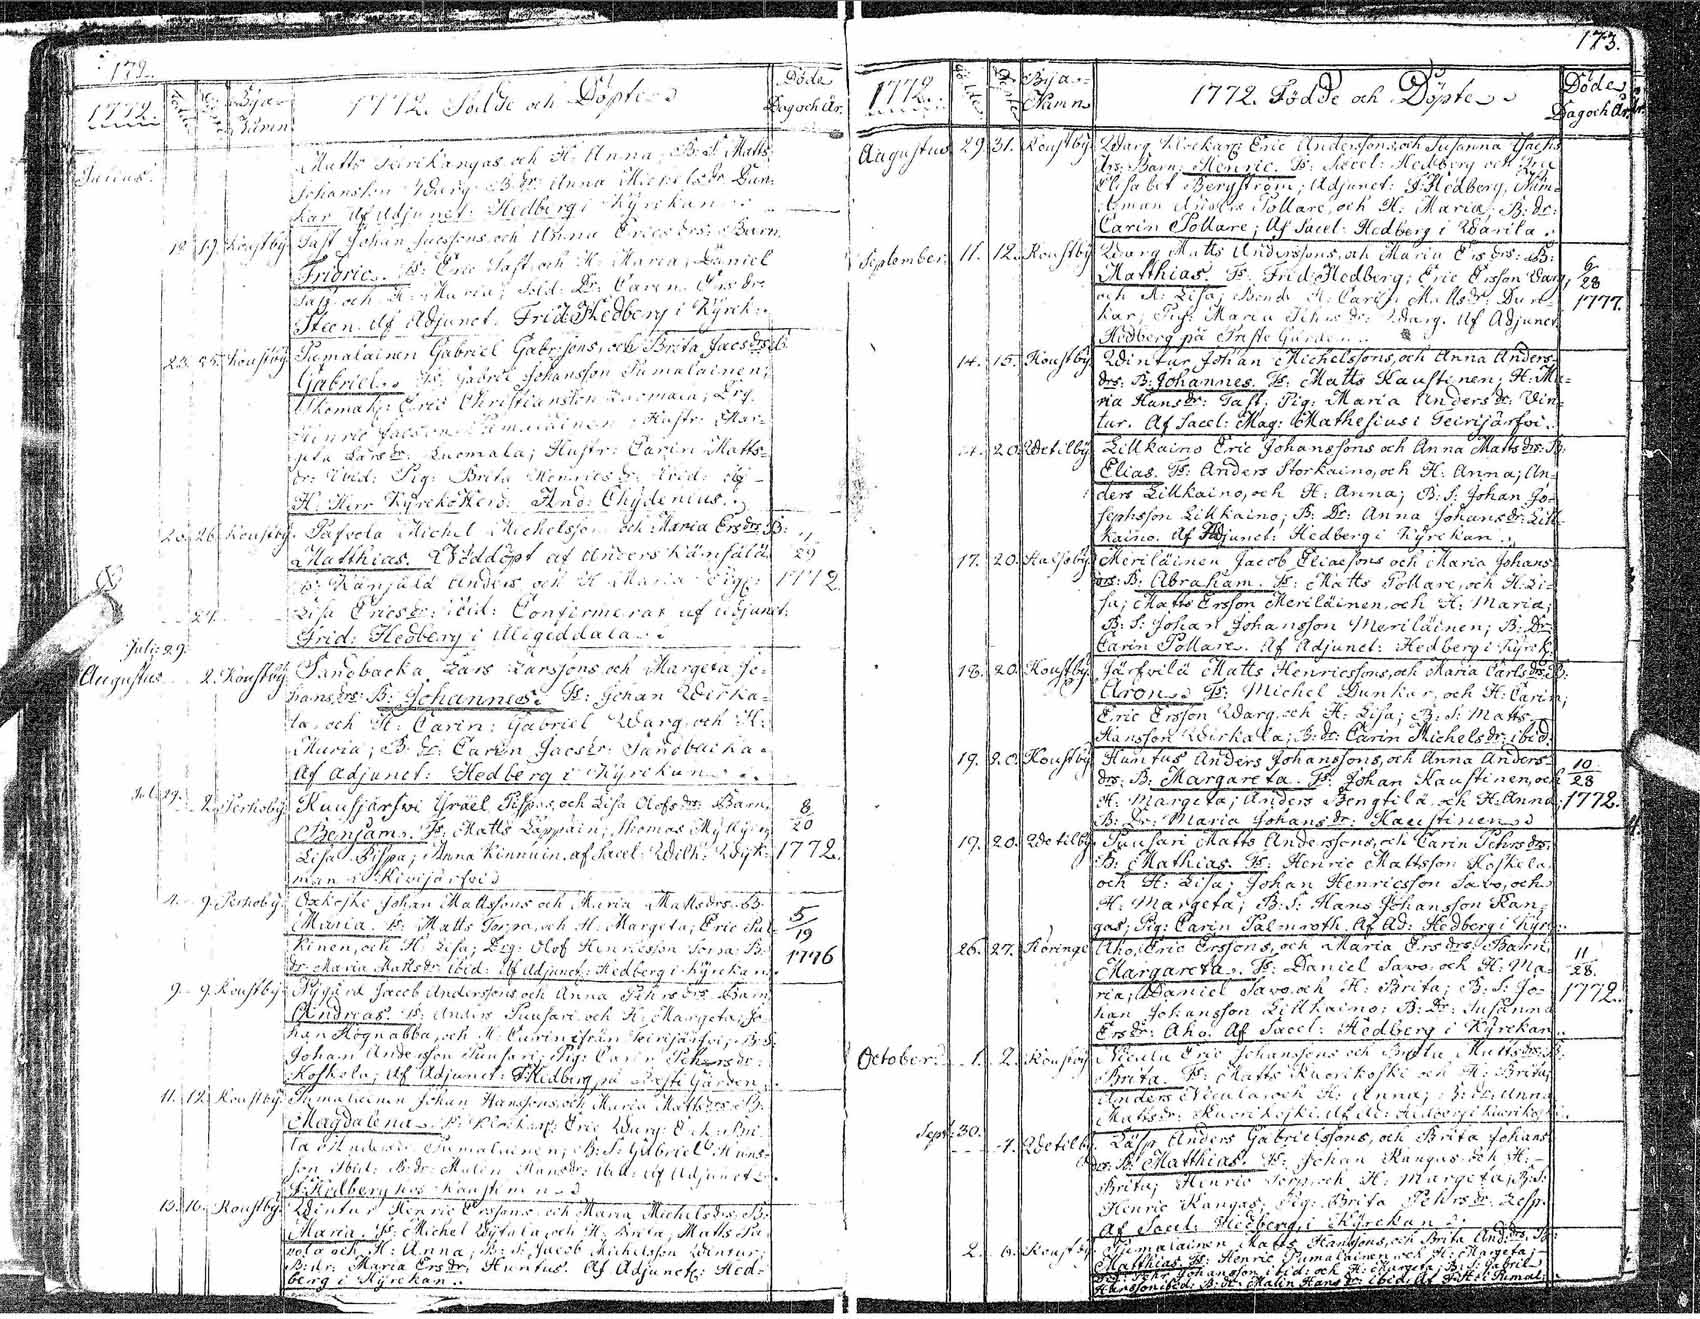 172.
1772. Byanamn 1772. Födde och Döpte Döde Dag och År.
Junius.
Matts Teirikangas och H. Anna; B: S: Matts
Johansson Warg. B: dr: Anna Michelsdr Dun-
kar. Af Adjunct: Hedberg i Kyrckan
12 17. Koustby Tast Johan Jacssons, och Anna Ericsdrs: Barn
Fridric. Fs: Eric Tast, och H: Maria; Daniel
Tast och H: Maria; Sold: Dr: Caren Ersdr
Steen. Af Adjunct. Frid: Hedberg i Kyrck:
23. 25. Koustby Pumalainen Gabriel Gabrssons, och Brita Jacsdrs B.
Gabriel. Fs: Gabriel Johansson Pumalainen;
Skomak: Eric Christiansson Luomala; Drg.
Henric Jacsson Pumalainen; Hustr: Mar-
geta Larsdr: Luomala; Hustr: Carin Matts-
dr: ibid: Pig: Brita Henricsdr: ibid: Af
H. Herr Kyrckoherd: And: Chydenius.
25. 26. Koustby. Pafvola Michel Michelsson och Maria Ersdrs B:
Matthias. Nöddöpt af Anders Känsälä
Fs: Känsälä Anders och H. Maria Pig:
11/29 1772
Lisa Ericsdr: ibid: Confirmerat af Adjunct:
27.
Frid: Hedberg i
Juli: 29.
Augustus 2. Koustby Sandbacka Lars Larssons och Margeta Jo-
hansdrs: B: Johannes. Fs: Johan Wirka-
la, och H: Carin: Gabriel Warg, och H:
Maria; B: dr: Carin Jacsdr: Sandbacka.
Af Adjunct: Hedberg i Kyrckan
Jul. 29. 2. Perhoby. Kuusjärfvi Israel och Lisa Olofsdrs Barn.
Benjam. Fs. Matts Lappain; Thomas
Lisa Anna Kinnuin. af Sacel: Wilh: Wijk-
man i Kivijärfvi
8/20 1772.
4. 9. Perhoby Oxkoski Johan Mattssons och Maria Mattsdrs. B.
Maria Fs: Matts Torpa, och H. Margeta; Eric Pul-
kinen, och H: Lisa; Drg: Olof Henricsson Torpa B:
dr Maria Mattsdr ibid: Af Adjunct: Hedberg i Kyrckan.
5/19 1776
9. 9. Koustby Nygård Jacob Anderssons, och Anna Pehrsdrs Barn
Andreas. Fs: Anders Puusari och H. Margeta; Jo-
han Högnabba, och H. Carin ifrån Teirijärfvi; B: S:
Johan Andersson Puusari; Pig: Carin Pehrsdr:
Koskela; Af Adjunct: F: Hedberg på PrästeGården.
11. 12. Koustby Pumalainen Johan Hanssons, och Maria Mattsdrs B.
Magdalena. Fs: Klockar: Eric Warg: E. H. Bri-
ta Andersdr Pumalainen; B: S: Gabriel Hans-
son ibid: B: dr: Malin Hansdr: ibid: Af Adjunct:
F: Hedberg hos Kaustinen
15. 16. Koustby. Wintur Henric Erssons, och Maria Michelsdrs. B.
Maria. Fs: Michel och H. Brita; Matts Pa-
vola och H: Anna; B: S: Jacob Michelsson Wintur;
B: dr: Maria Ersdr: Huntus. Af Adjunct: Hed-
berg i Kyrckan.
173.
1772. Bya- Namn 1772. Födde och Döpte Döde Dag och År.
Augustus 29. 31. Koustby Warg Klockar: Eric Anderssons, och Susanna Jacs
drs: Barn: Henric. Fs: Sacel: Hedberg och Fru
Elisabet Bergström; Adjunct: F: Hedberg. Näm-
deman Anders Tollare, och H: Maria; B: dr:
Carin Tollare; Af Sacel: Hedberg i Warila.
September. 11. 12. Koustby Warg Matts Anderssons, och Maria Ersdrs: B:
Matthias. Fs. Frid: Hedberg; Eric Ersson Warg,
och H. Lisa; Bonde H. Carin Mattsdr Dun-
kar, Pig: Maria Pehrsdr Warg. Af Adjunct
Hedberg på PrästeGården.
6/28 1777.
14. 15. Koustby Wintur Johan Michelssons, och Anna Anders-
drs: B: Johannes. Fs: Matts Kaustinen; H: Ma-
ria Hansdr: Tast. Pig: Maria Andersdr: Vin-
tur. Af Sacel: Mag: Mathesius i Teirijärfvi.
20. Wetilby Lillkaino Eric Johanssons och Anna Mattsdrs: B:
Elias. Fs: Anders Storkaino, och H: Anna; An-
ders Lillkaino, och H: Anna; B: S: Johan Jo-
sephsson Lillkaino; B: Dr: Anna Johansdr: Lill-
kaino. Af Adjunct: Hedberg i Kyrckan.
17. 20. Haisby Meriläinen Jacob Eliaessons och Maria Johans-
drs: B: Abraham. Fs: Matts Tollare, och H. Li-
sa; Matts Ersson Meriläinen, och H: Maria;
B: S: Johan Johansson Meriläinen; B: Dr:
Carin Tollare. Af Adjunct: Hedberg i Kyrck.
18. 20. Koustby Järfvilä Matts Henricssons, och Maria Carlsdrs: B:
Aron. Fs: Michel Dunkar, och H: Carin;
Eric Ersson Warg, och H: Lisa; B: S: Matts
Hansson Wirkala; B: dr: Carin Michelsdr: ibid.
19. 20. Koustby Huntus Anders Johanssons, och Anna Anders-
drs: B: Margareta. Fs: Johan Kaustinen, och
H: Margeta; Anders Bengtilä, och H: Anna,
B: Dr: Maria Johansdr: Kaustinen
10/28 1772.
19. 20. Wetilby Puusari Matts Anderssons, och Carin Pehrsdrs:
B: Mathias. Fs: Henric Mattsson Koskela
och H: Lisa; Johan Henricsson Savo, och
H: Margeta; B: S: Hans Johansson Kan-
gas; Pig: Carin Palmroth. Af Ad: Hedberg i Kyrc:
26. 27. Röringe Aho, Eric Erssons, och Maria Ersdrs Barn
Margareta. Fs: Daniel Savo och H: Ma-
ria; Daniel Savo och H: Brita; B: S: Jo-
han Johansson Lillkaino: B: Dr: Susanna
Ersdr: Aho. Af Sacel: Hedberg i Kyrckan.
11/28. 1772.
October. 1. 2. Koustby Nicula Eric Johanssons och Brita Mattsdrs. B.
Brita. Fs: Matts Kuorikoski och H: Brita;
Anders Nicula och H: Anna; B: dr: Anna
Mattsdr: Kuorikoski. Af Ad: Hedberg i Kuorikoski.
Sept: 30. 4. Wetilby Läsp Anders Gabrielssons, och Brita Johans
drs: B: Matthias. Fs: Johan Kangas och H:
Brita; Henric Torp och H: Margeta; B: S:
Henric Kangas; Pig: Brita Pehrsdr: Lesp.
Af Sacel: Hedberg i Kyrckan.
2. 6. Koustby Pumalainen Matts Hanssons, och Brita Andsdrs. B:
Matthias. Fs: Henric Pumalainen och H: Margeta;
Johansson ibid: och H: Margeta; B: S: Gabriel
Hansson ibid; B: dr: Malin Hansdr: ibid: Af F: Hed: Pumal: